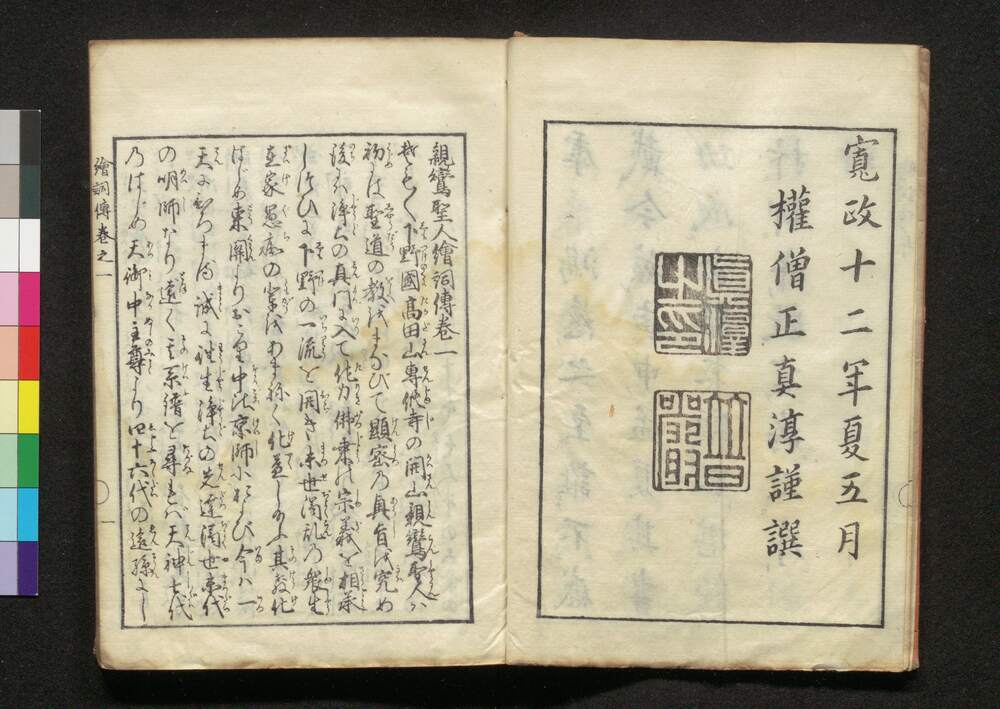 寛政十二年夏五月
權僧正真淳謹譔
真淳
之印
親鸞聖人繪詞傳卷一
下野國髙田山專修寺の開山親鸞聖人ハ
初は聖道の教をまなびて顯密乃真旨を究め
後ハ浄土の真門に入て他力佛乗の宗義を相承
しつひに下野の一流を開き末世濁乱の衆生
在家愚癡の輩をあまねく化益し給ふ其教化
はじめ東關より中比京師におよび今ハ一
天にまつたし誠に往生浄土の先達濁世末代
の明師なり遠く其系譜を尋るれバ天神七代
乃はじめ天御中主尊より四十六代の遠孫にし
繪詞傳卷之一
一